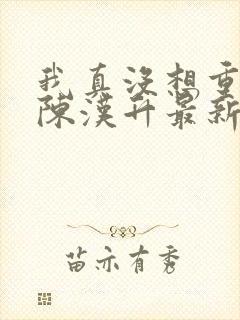 我真没想重
陈汉升最新
苗亦有秀